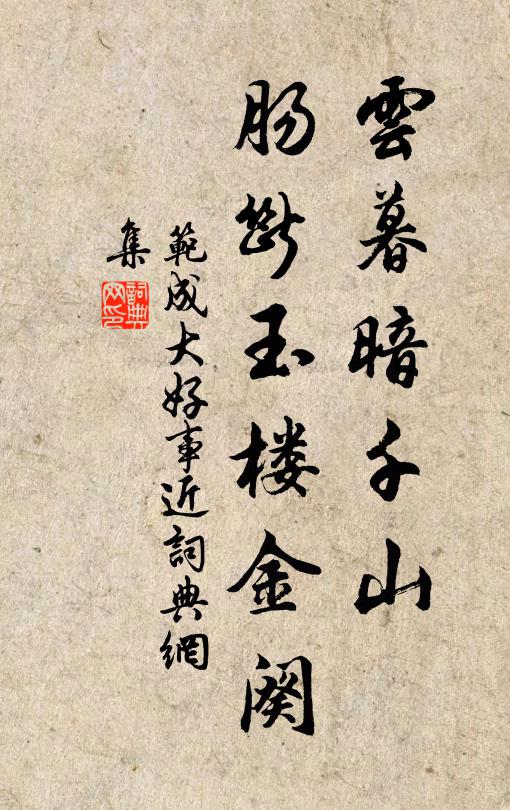 雲暮暗千山
腸斷玉樓金闕
範成大好事近詞典網
集
詞典
网印